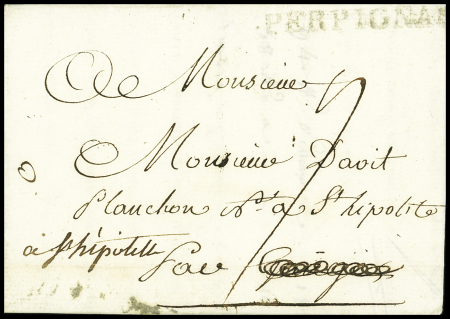 PERPIGNAN
A Monsieur
Monsieur Davit
Planchon Nt. a St hipolite
a St hipolitte
Par